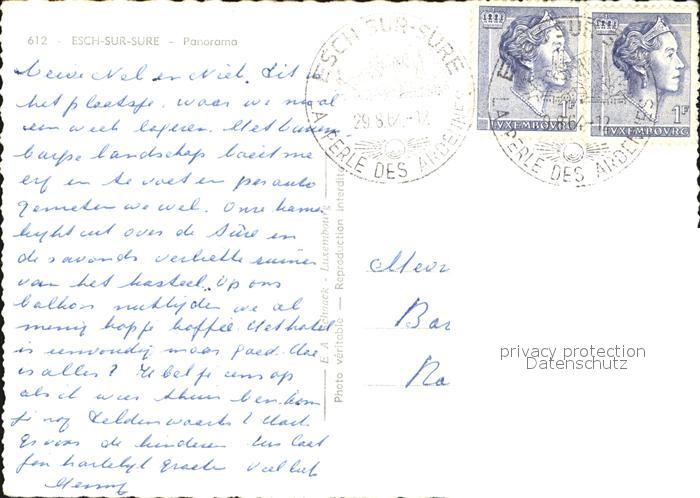 612 - ESCH-SUR-SURE - Panorama
ESCH-SUR-SURE
29.8.64-12
LA PERLE DES ARDENNES
LUXEMBOURG
1F
LUXEMBOURG
29.8.64-12
LA PERLE DES ARDENNES
Lieve Nel en Niet. Dit is
het plaatsje waar we nu al
een week logeren. Het
landschap boeit me
erg en te voet en per auto
genieten we wel. Onze kamer
kijkt uit over de Sûre en
de 's avonds verlichte ruïne
van het kasteel. Op ons
balkon we al
menig kopje koffie. Het hotel
is eenvoudig maar goed. Hoe
is alles? Ik bel je eens op
als ik weer thuis ben. Kom
je nog Gelderwaarts? Veel
de kinderen
hartelijk groeten veel liefs
E. A. Schaack - Luxembourg
Photo véritable - Reproduction interdite
Mevr
Bar
Na
privacy protection
Datenschutz